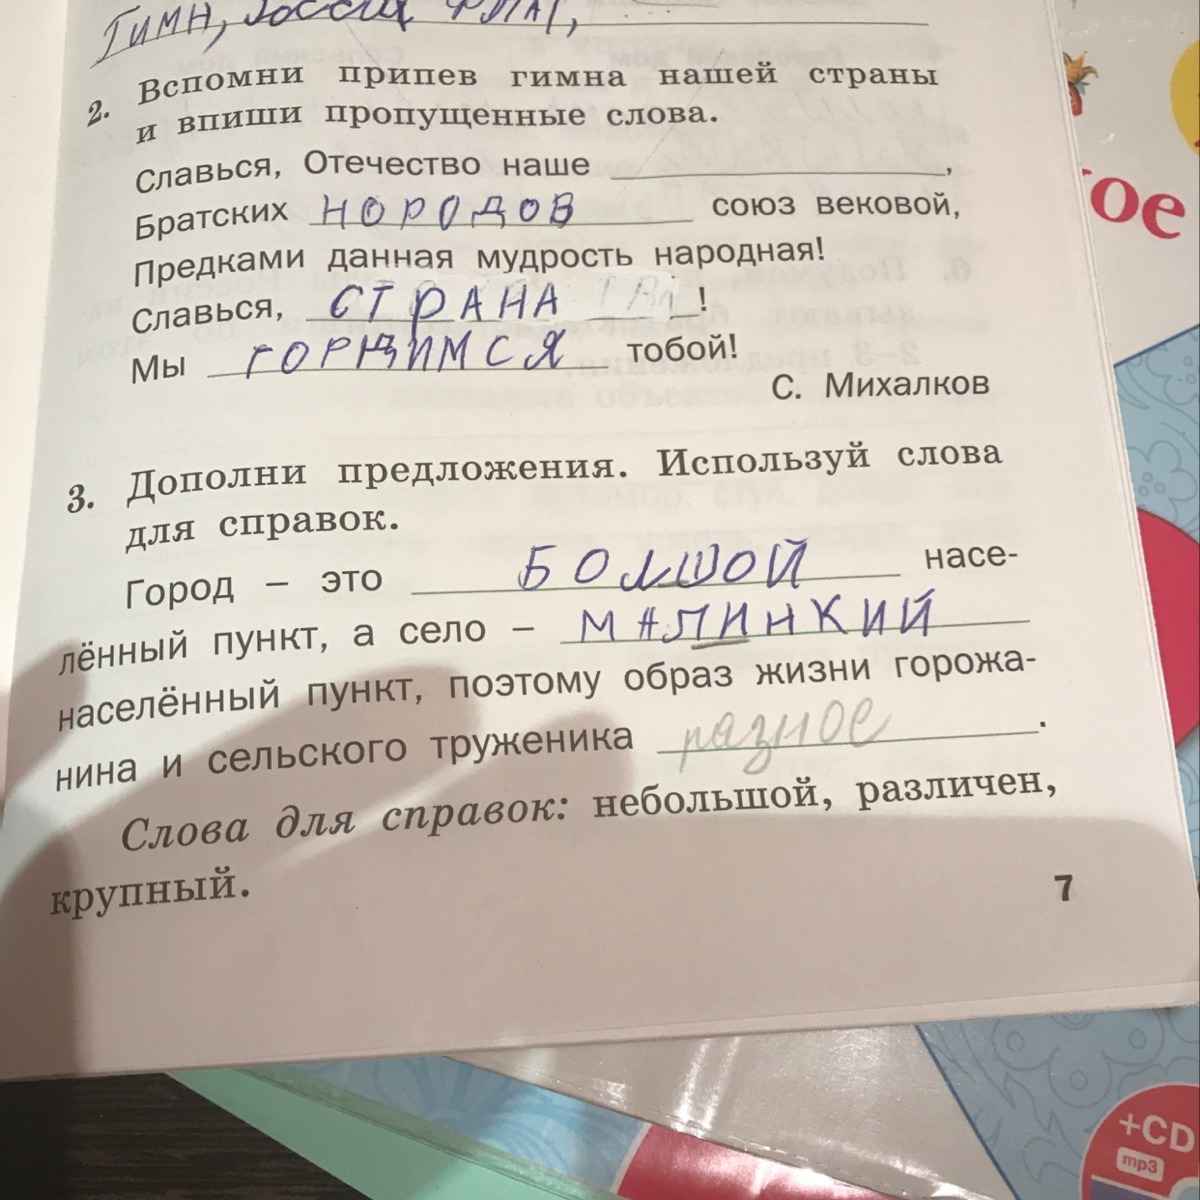 Гимн, Россия ФЛАГ,
2. Вспомни припев гимна нашей страны
и впиши пропущенные слова.
Славься, Отечество наше ,
Братских НОРОДОВ союз вековой,
Предками данная мудрость народная!
Славься, СТРАНА !
Мы ГОРДИМСЯ тобой!
С. Михалков
3. Дополни предложения. Используй слова
для справок.
Город – это БОЛШОЙ насе-
лённый пункт, а село – МАЛИНКИЙ
населённый пункт, поэтому образ жизни горожа-
нина и сельского труженика разное .
Слова для справок: небольшой, различен,
крупный.
7
ое
+CD
mp3